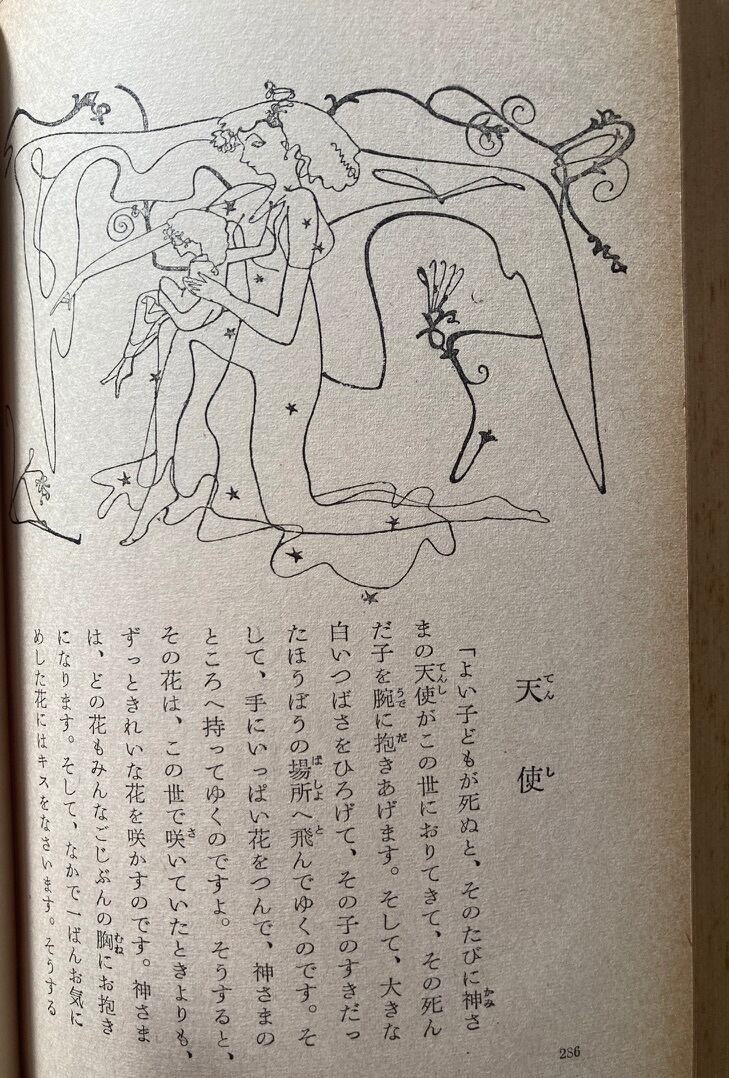 天使
「よい子どもが死ぬと、そのたびに神さ
まの天使がこの世におりてきて、その死ん
だ子を腕に抱きあげます。そして、大きな
白いつばさをひろげて、その子のすきだっ
たほうぼうの場所へ飛んでゆくのです。そ
して、手にいっぱい花をつんで、神さまの
ところへ持ってゆくのですよ。そうすると、
その花は、この世で咲いていたときよりも、
ずっときれいな花を咲かすのです。神さま
は、どの花もみんなごじぶんの胸にお抱き
になります。そして、なかで一ばんお気に
めした花にはキスをなさいます。そうする
286